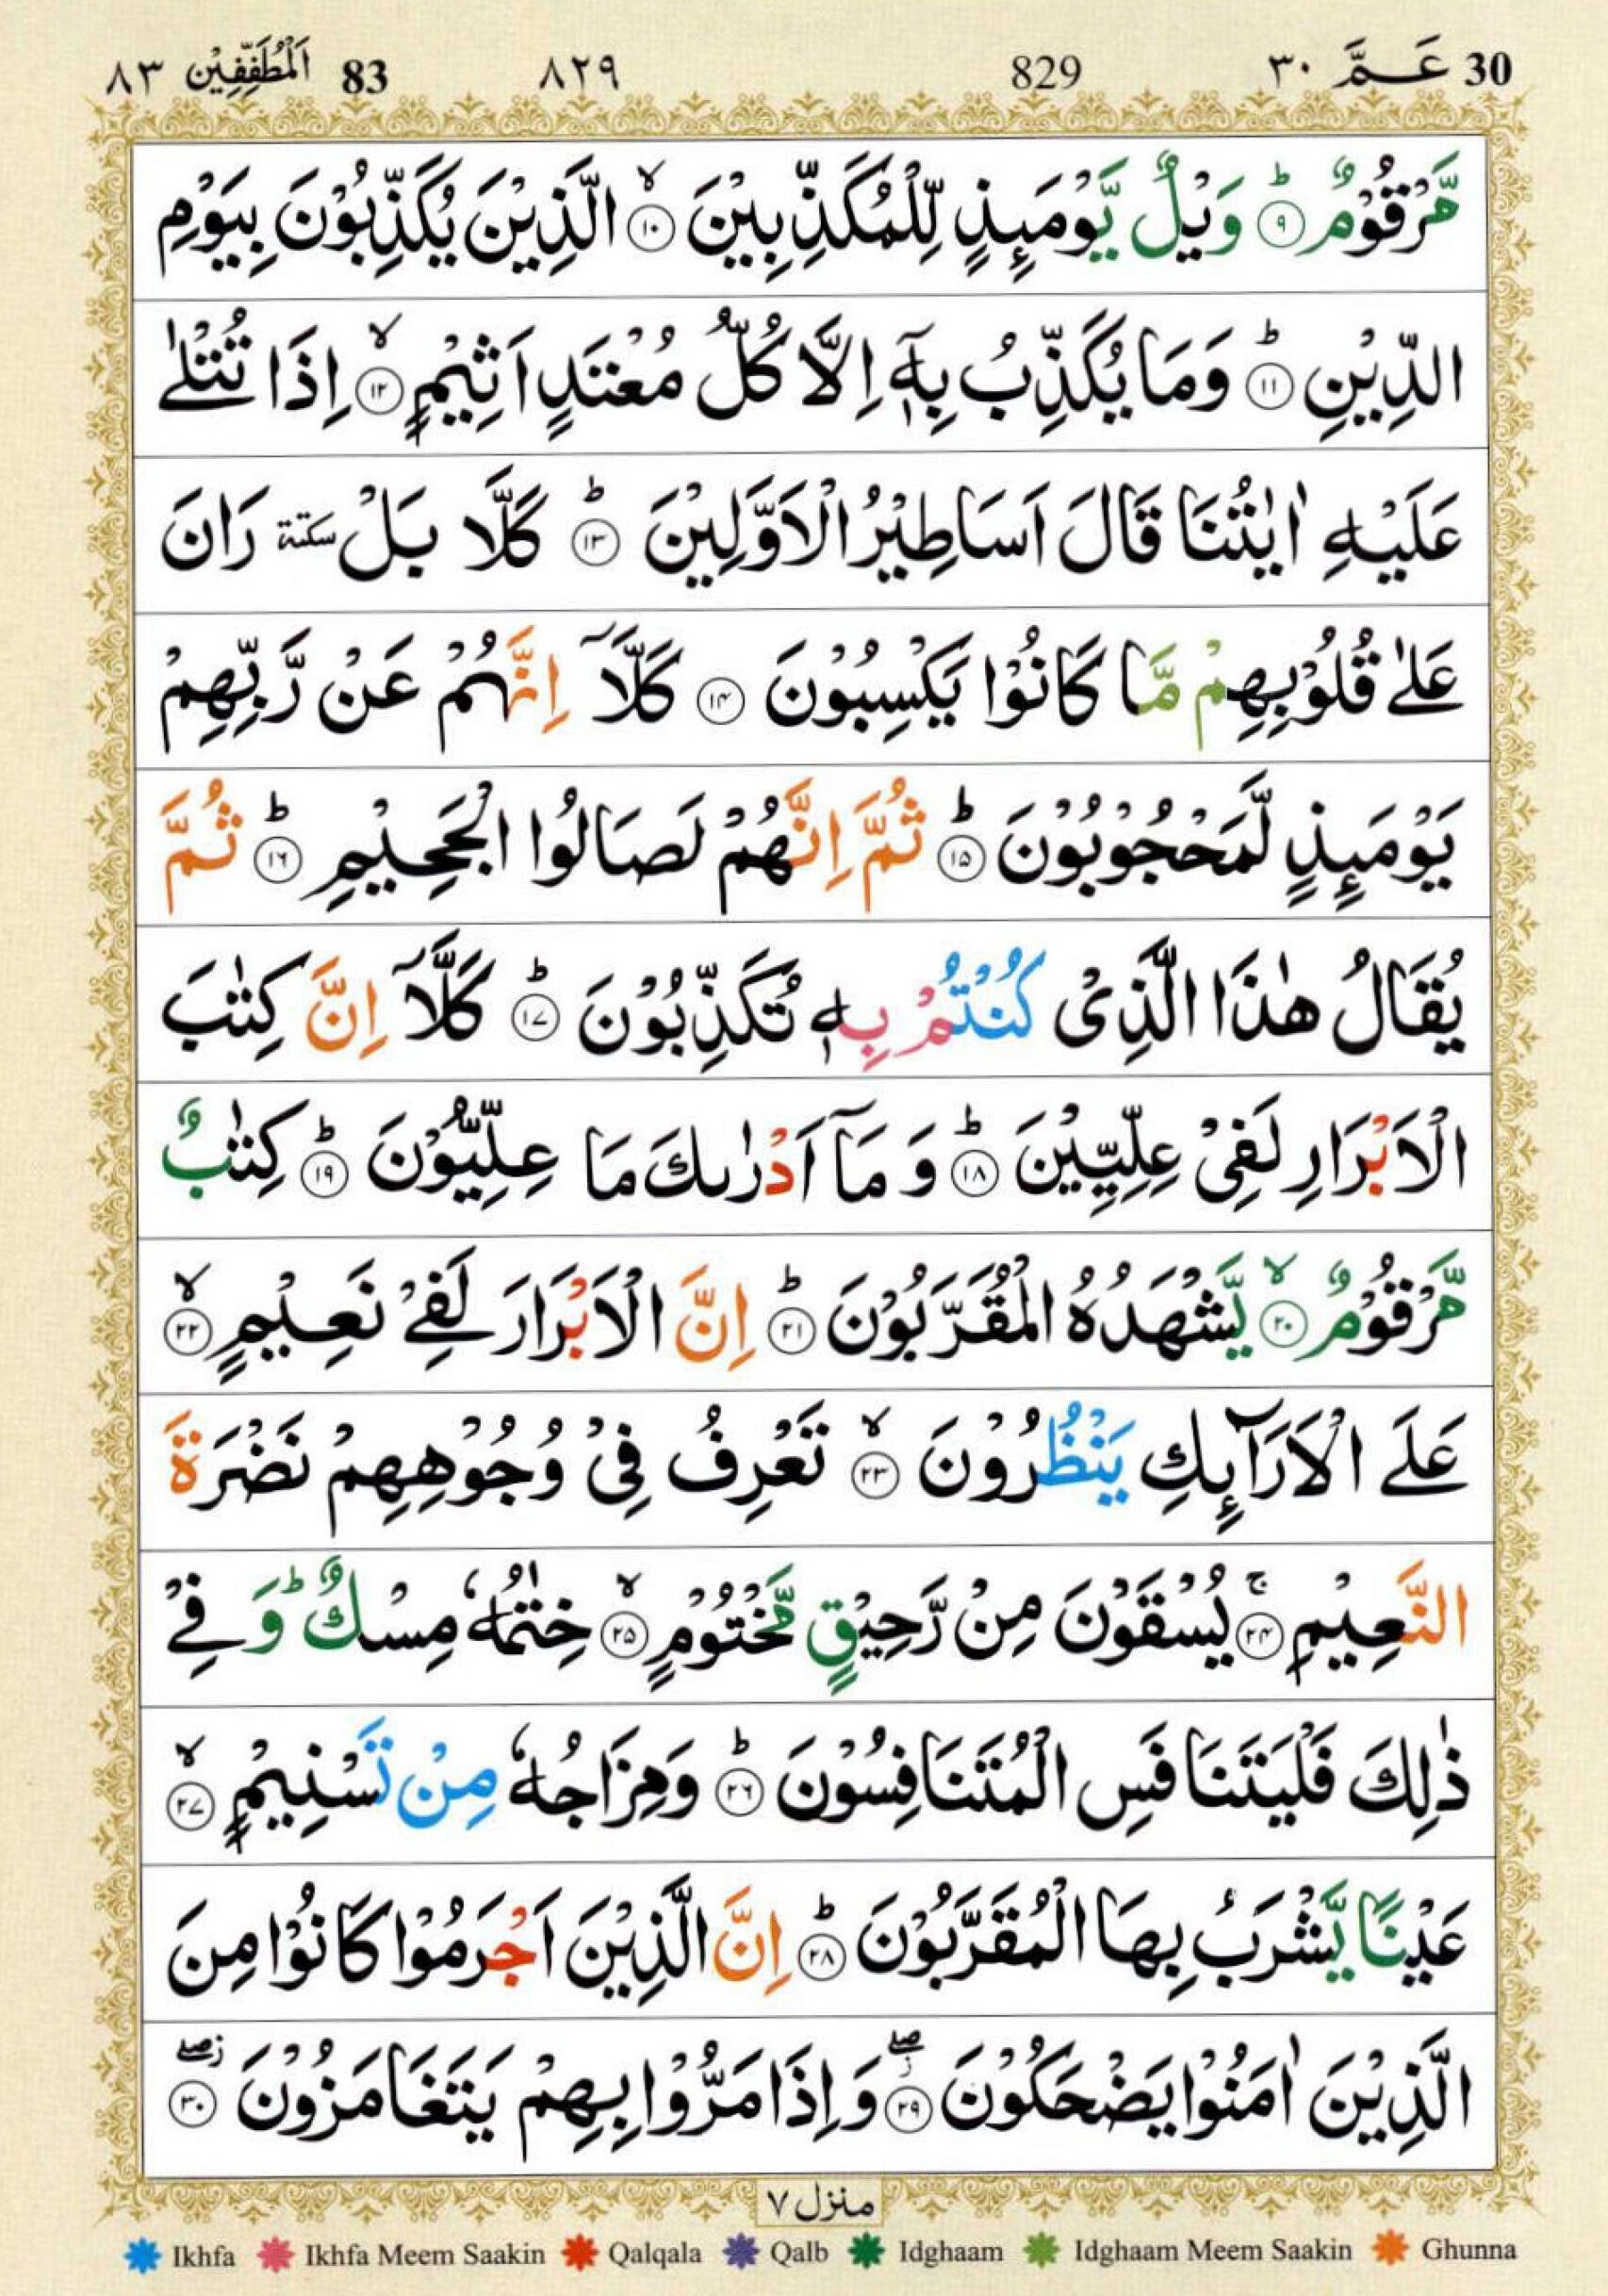 30 عَمَّ ٣٠ 829 ٨٢٩ 83 اَلْمُطَفِّفِيْن ٨٣
مَّرْقُوْمٌ ؕ‏ ﴿۹﴾ وَيْلٌ يَّوْمَٮِٕذٍ لِّلْمُكَذِّبِيْنَ ۙ‏ ﴿۱۰﴾ الَّذِيْنَ يُكَذِّبُوْنَ بِيَوْمِ
الدِّيْنِ ؕ‏ ﴿۱۱﴾ وَمَا يُكَذِّبُ بِهٖۤ اِلَّا كُلُّ مُعْتَدٍ اَثِيْمٍ ۙ‏ ﴿۱۲﴾ اِذَا تُتْلٰى
عَلَيْهِ اٰيٰتُنَا قَالَ اَسَاطِيْرُ الْاَوَّلِيْنَ ؕ‏ ﴿۱۳﴾ كَلَّا بَلْ سكتة رَانَ
عَلٰى قُلُوْبِهِمْ مَّا كَانُوْا يَكْسِبُوْنَ‏ ﴿۱۴﴾ كَلَّاۤ اِنَّهُمْ عَنْ رَّبِّهِمْ
يَوْمَٮِٕذٍ لَّمَحْجُوْبُوْنَ ؕ‏ ﴿۱۵﴾ ثُمَّ اِنَّهُمْ لَصَالُوا الْجَحِيْمِ ؕ‏ ﴿۱۶﴾ ثُمَّ
يُقَالُ هٰذَا الَّذِىْ كُنْتُمْ بِهٖ تُكَذِّبُوْنَ ؕ‏ ﴿۱۷﴾ كَلَّاۤ اِنَّ كِتٰبَ
الْاَبْرَارِ لَفِىْ عِلِّيِّيْنَ ؕ‏ ﴿۱۸﴾ وَمَاۤ اَدْرٰٮكَ مَا عِلِّيُّوْنَ ؕ‏ ﴿۱۹﴾ كِتٰبٌ
مَّرْقُوْمٌ ۙ‏ ﴿۲۰﴾ يَّشْهَدُهُ الْمُقَرَّبُوْنَ ؕ‏ ﴿۲۱﴾ اِنَّ الْاَبْرَارَ لَفِىْ نَعِيْمٍ ۙ‏ ﴿۲۲﴾
عَلَى الْاَرَآٮِٕكِ يَنْظُرُوْنَ ۙ‏ ﴿۲۳﴾ تَعْرِفُ فِىْ وُجُوْهِهِمْ نَضْرَةَ
النَّعِيْمِ ۚ‏ ﴿۲۴﴾ يُسْقَوْنَ مِنْ رَّحِيْقٍ مَّخْتُوْمٍ ۙ‏ ﴿۲۵﴾ خِتٰمُهٗ مِسْكٌ ؕ وَفِىْ
ذٰلِكَ فَلْيَتَنَافَسِ الْمُتَنَافِسُوْنَ ؕ‏ ﴿۲۶﴾ وَمِزَاجُهٗ مِنْ تَسْنِيْمٍ ۙ‏ ﴿۲۷﴾
عَيْنًا يَّشْرَبُ بِهَا الْمُقَرَّبُوْنَ ؕ‏ ﴿۲۸﴾ اِنَّ الَّذِيْنَ اَجْرَمُوْا كَانُوْا مِنَ
الَّذِيْنَ اٰمَنُوْا يَضْحَكُوْنَ ۖ‏ ﴿۲۹﴾ وَاِذَا مَرُّوْا بِهِمْ يَتَغَامَزُوْنَ ۖ‏ ﴿۳۰﴾
منزل ٧
Ikhfa Ikhfa Meem Saakin Qalqala Qalb Idghaam Idghaam Meem Saakin Ghunna